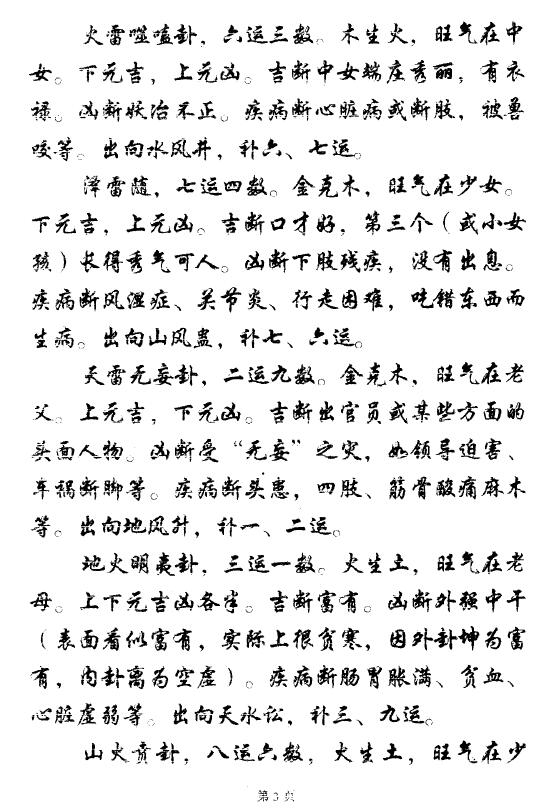 火雷噬嗑卦，六运三数。木生火，旺气在中
女。下元吉，上元凶。吉断中女端庄秀丽，有衣
禄。凶断妖冶不正。疾病断心脏病或断肢，被兽
咬等。出向水风井，补六、七运。
泽雷随，七运四数。金克木，旺气在少女。
下元吉，上元凶。吉断口才好，第三个（或小女
孩）长得秀气可人。凶断下肢残疾，没有出息。
疾病断风湿症、关节炎、行走困难，吃错东西而
生病。出向山风蛊，补七、六运。
天雷无妄卦，二运九数。金克木，旺气在老
父。上元吉，下元凶。吉断出官员或某些方面的
头面人物。凶断受“无妄”之灾，如领导迫害、
车祸断脚等。疾病断头患，四肢、筋骨酸痛麻木
等。出向地风升，补一、二运。
地火明夷卦，三运一数。火生土，旺气在老
母。上下元吉凶各半。吉断富有。凶断外强中干
（表面看似富有，实际上很贫寒，因外卦坤为富
有，内卦离为空虚）。疾病断肠胃胀满、贫血、
心脏虚弱等。出向天水讼，补三、九运。
山火贲卦，八运六数，火生土，旺气在少
第3页